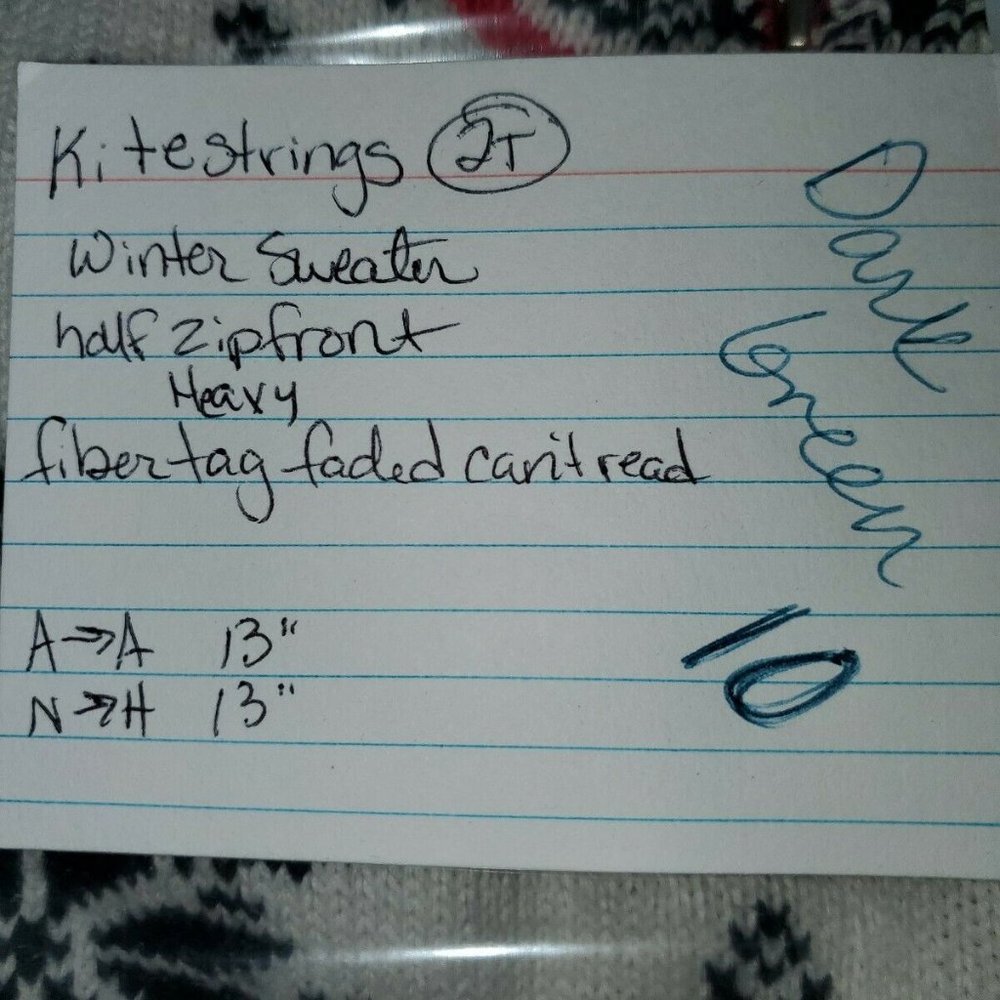 Kitestrings 2T
Winter Sweater
half zipfront
Heavy
fiber tag faded can't read
A→A 13"
N→H 13"
Dark
Green
10